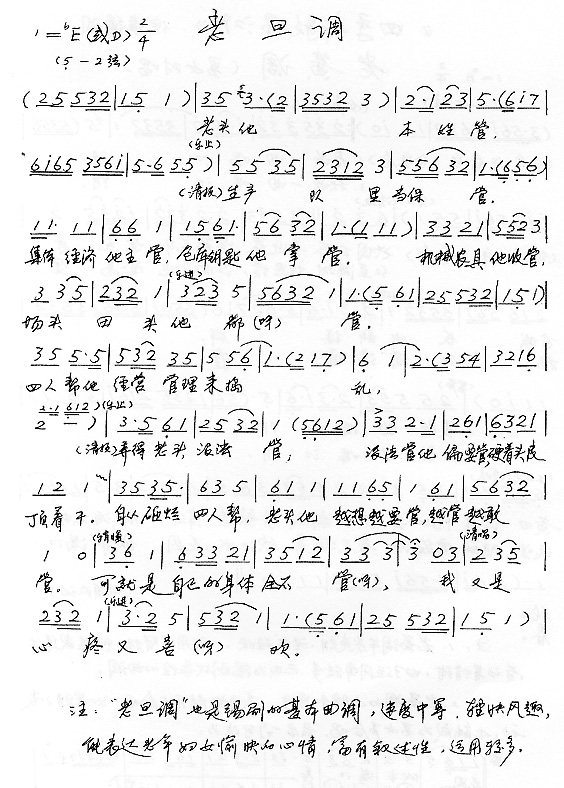 1=ᵇE(或D) 2/4 老旦调
(5̣-2弦)
(25 532|1 5 1)|35 3·(2|3532 3)|2·1 23|5·(6i7|
(乐止)
老头他 本姓管,
6i65 356i|5·6 55)|55 35|2312 3|556 32|1·(656)|
(清板)生产 队 里当保 管.
11 11|66 1|15 61·|56 32|1·(111)|33 21|5523|
集体 经济 他主管,仓库钥匙 他 掌 管. 机械农具 他收管,
(乐进)
3 35|232 1|323 5|5632 1|1·(5 61|25 532|151)|
场头 田 头他 都(呀) 管.
35 5·5|532 35|5 56|1·(217)|6 1|2·(354|3216|
四人帮他 经营 管理来搞 乱,
2·1 612)(乐止)
2 —|3·5 61|25 32|1 (5612)|33 2·1|261|6321|
(清板)弄得 老头 没法 管, 没法管他 偏要管,硬着头皮
12 1|3535·|63 5|61 1|11 65|1 61|5632|
顶着干. 自从砸烂 四人帮, 老头他 越想越要管,越管越敢
(稍慢) (清唱)
1 0|36 1|633 21|35 12|33 3 3|3 03|2 35|
管. 可就是 自己的身体 全不 管(呀), 我 又是
(乐进)
232 1|3·2 5|532 1|1·(5 61|25 532|1 5 1)|
心 疼 又 喜(呀) 欢.
注:“老旦调”也是锡剧的基本曲调,速度中等.轻快风趣,
能表达老年妇女愉快的心情,富有叙述性,运用较多.